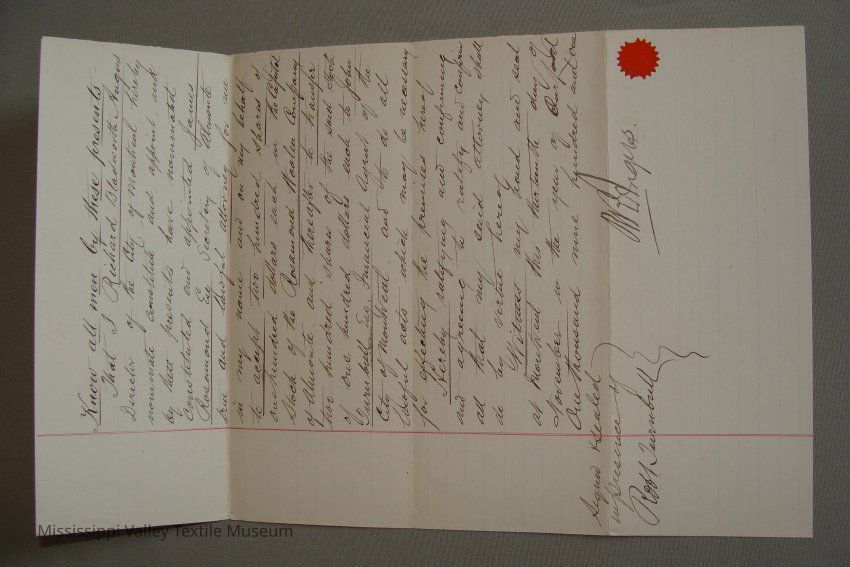 Know all men by these presents
That I Richard Bladworth Angus
Director of the City of Montreal hereby
nominate constitute and appoint and
by these presents have nominated
constituted and appointed James
Rosamond Esq Secretary of Almonte
true and lawful attorney for me
in my name and on my behalf
to accept two hundred shares of
one hundred dollars each in the Capital
Stock of the Rosamond Woolen Company
of Almonte and hereafter to transfer
two hundred shares of the said Stock
of one hundred dollars each to John
Turnbull Esq Financial Agent of the
City of Montreal and to do all
lawful acts which may be necessary
for effecting the premises hereof
Hereby ratifying and confirming
and agreeing to ratify and confirm
all that my said attorney shall
do by virtue hereof
Witness my hand and seal
at Montreal this thirteenth day of
November in the year of Our Lord
One thousand nine hundred and
Signed & Sealed
in presence of
Robt Turnbull
R B Angus.
Mississippi Valley Textile Museum